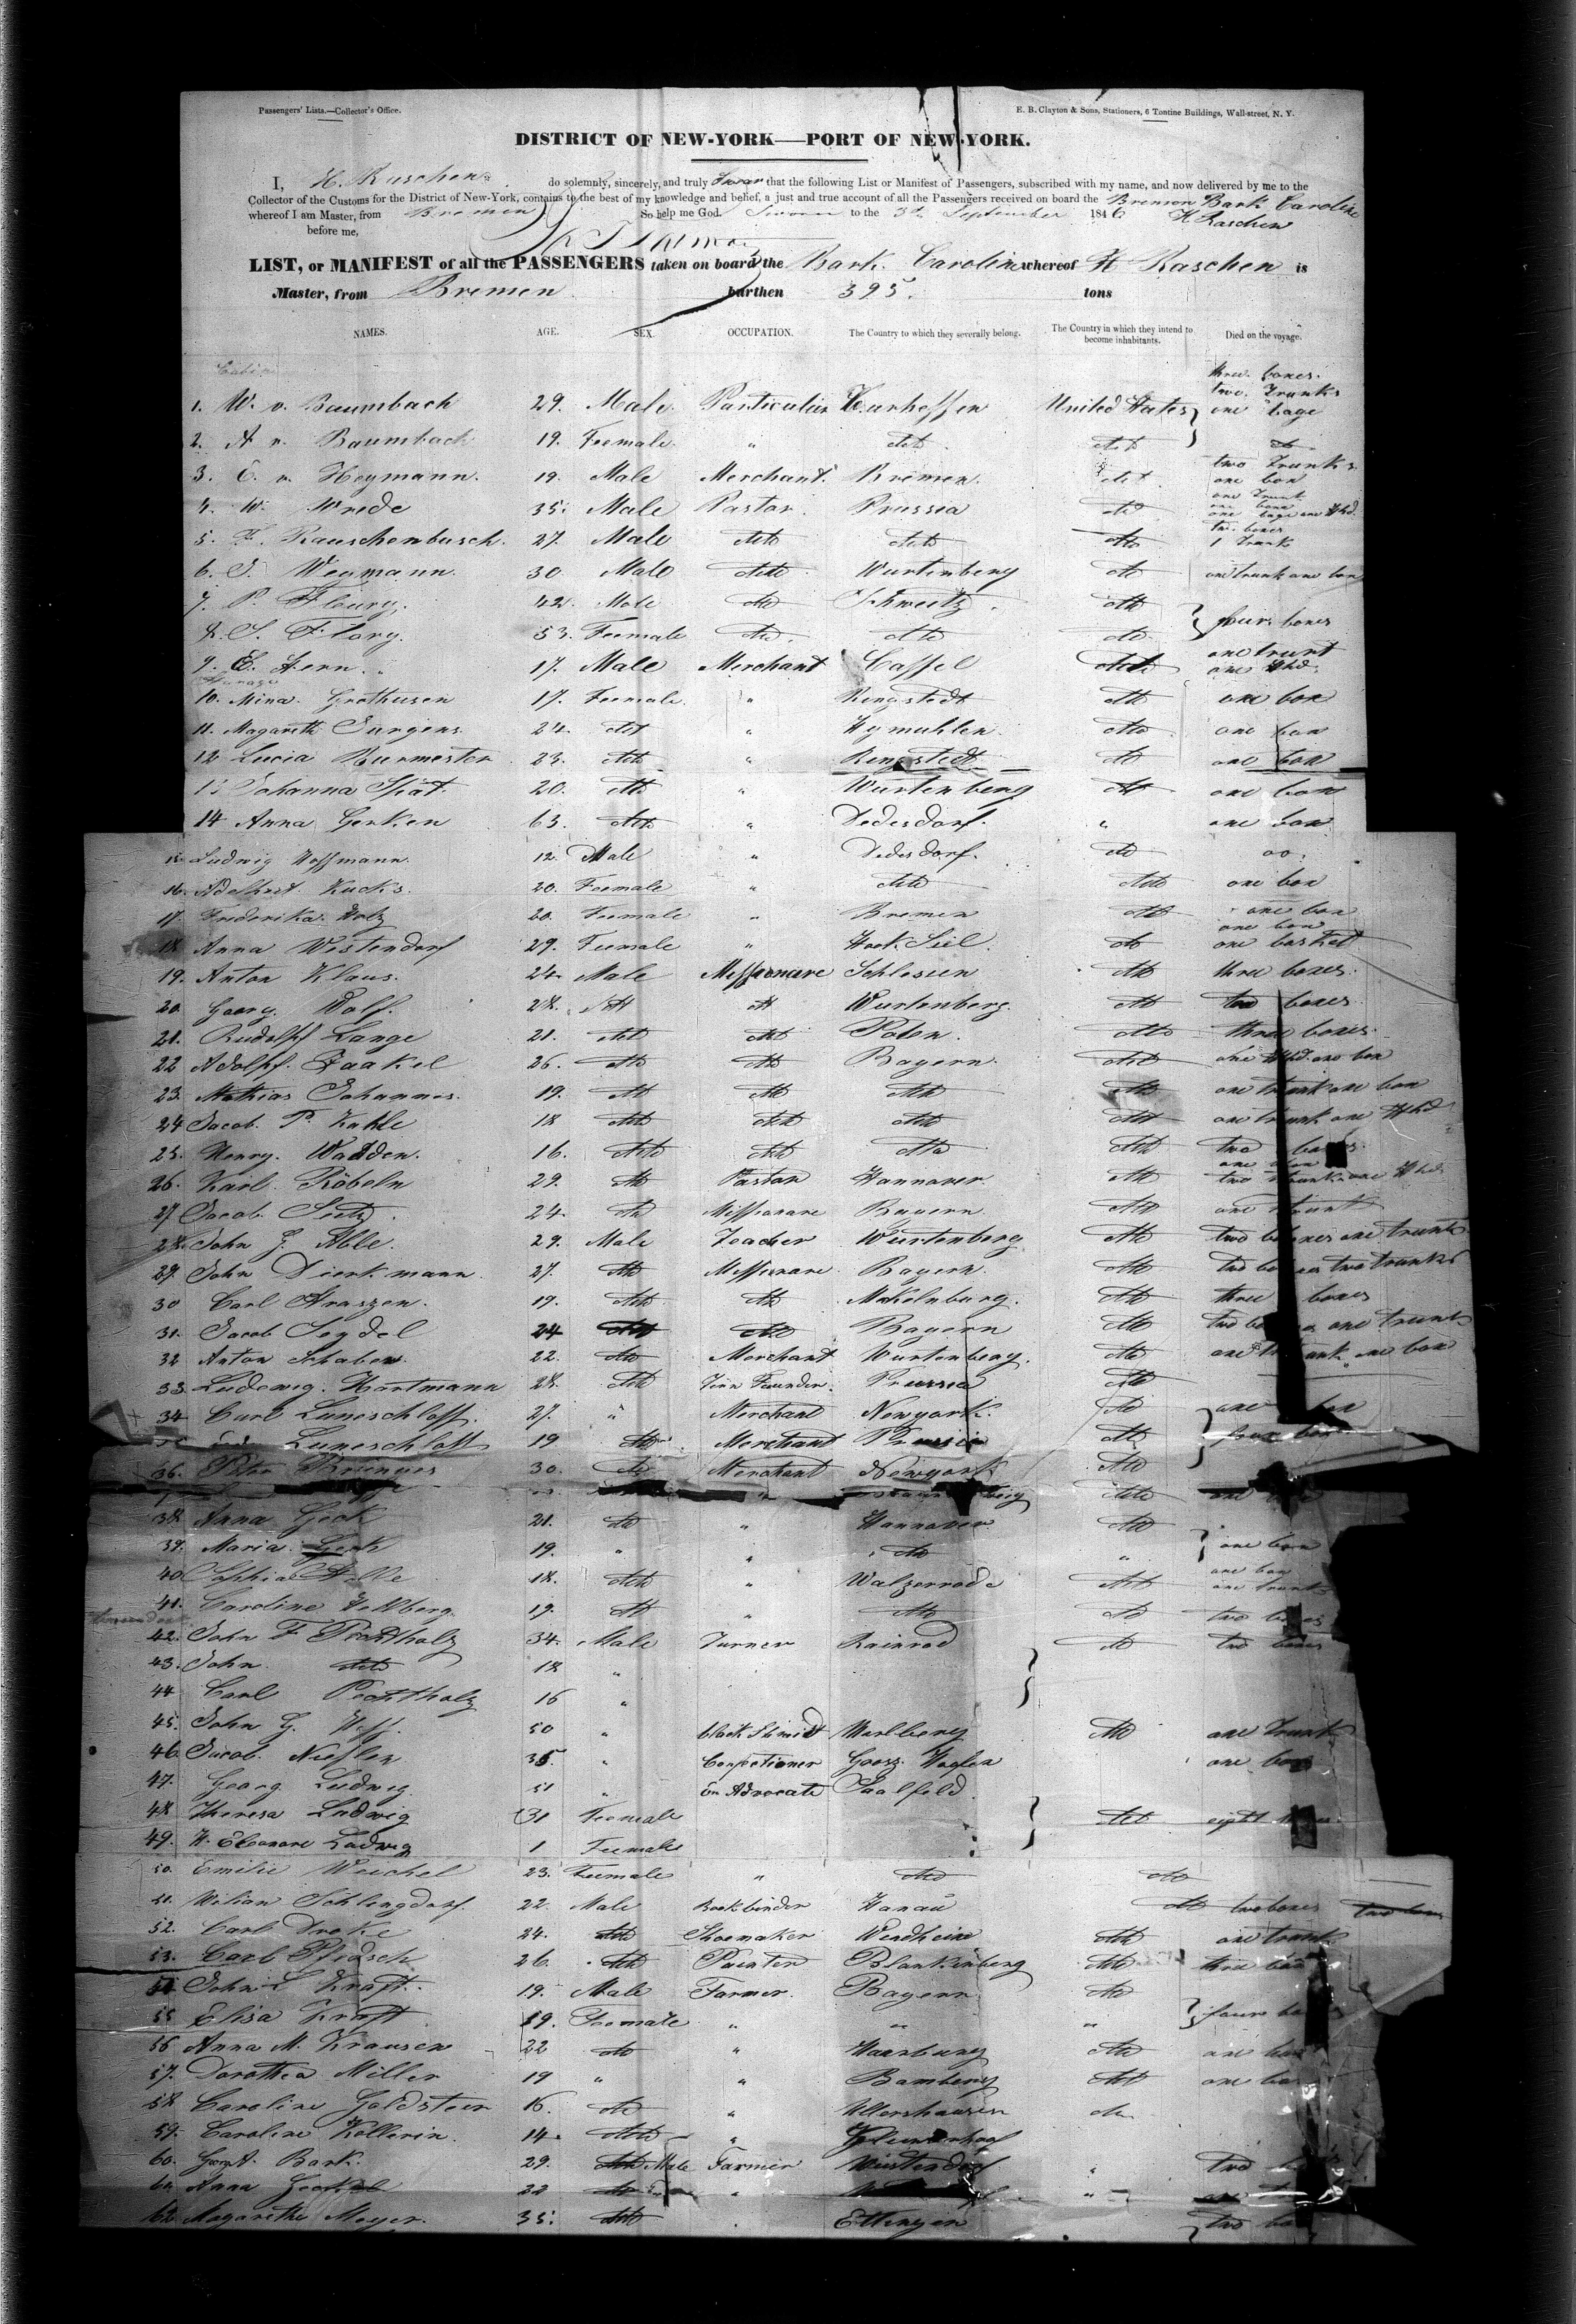 Passengers' Lists.—Collector's Office.
E. B. Clayton & Sons, Stationers, 6 Tontine Buildings, Wall-street, N. Y.
DISTRICT OF NEW-YORK—PORT OF NEW-YORK.
I, H. Raschen do solemnly, sincerely, and truly Swear that the following List or Manifest of Passengers, subscribed with my name, and now delivered by me to the
Collector of the Customs for the District of New-York, contains to the best of my knowledge and belief, a just and true account of all the Passengers received on board the Bremen Bark Caroline
whereof I am Master, from Bremen So help me God. Sworn to the 3d September 1846 H Raschen
before me,
LIST, or MANIFEST of all the PASSENGERS taken on board the Bark Caroline whereof H Raschen is
Master, from Bremen burthen 395. tons
NAMES. AGE. SEX. OCCUPATION. The Country to which they severally belong. The Country in which they intend to become inhabitants. Died on the voyage.
Cabin
three boxes.
two Trunks
1. W. v. Baumbach 29. Male. Particulier Kurhessen United States one bage
2. A v. Baumbach 19. Feemale. " ditto ditto do
two Trunks
3. C. v. Heymann. 19. Male Merchant. Bremen. ditto one box
4. W. Wrede 35. Male Pastor. Prussia ditto
two boxes
5. F. Rauschenbusch. 27. Male ditto ditto ditto 1 Trunk
6. J. Wegmann. 30. Male ditto Wurtenberg ditto one trunk one box
7. P. Floury. 42. Male ditto Schweitz. ditto
8. S. Flory. 53. Feemale ditto ditto ditto four boxes
9. E. Fern. 17. Male Merchant Cassel ditto one trunk one Hhd.
10. Mina Grothusen 17. Feemale. " Ringstedt ditto one box
11. Magareth Jurgens 24. ditto " Hymuhlen. ditto one box
12 Lucia Burmester 23. ditto " Ringstedt ditto one box
13 Johanna Spät. 20. ditto " Wurtenberg ditto one box
14 Anna Gerken 63. ditto " Dedesdorf. " one box
15 Ludwig Hoffmann. 12. Male " Dedesdorf. ditto do.
16. Adelheit Kucks. 20. Feemale " ditto ditto one box
17. Frederika Holz 20. Feemale " Bremen ditto one box
one box
18 Anna Westendorf 29. Feemale " Hook Siel. ditto one basket
19. Anton Klaus. 24. Male Missionare Schlesien ditto three boxes.
20. Georg. Wolf. 28. ditto ditto Wurtenberg. ditto two boxes
21. Rudolpf Lange 21. ditto ditto Polen. ditto three boxes.
22 Adolpf. Zaakel 26. ditto ditto Bayern. ditto one Hhd. one box
23. Mathias Johannes. 19. ditto ditto ditto ditto one trunk one box
24 Jacob. P. Kahle 18 ditto ditto ditto ditto one trunk one Hhd
25. Henry. Wadden. 16. ditto ditto ditto ditto two boxes.
26. Karl. Röbeln 29. ditto Pastor Hannover. ditto
27 Jacob Seitz. 24. ditto Missionare Bayern. ditto one trunk
28. John G. Able. 29. Male Teacher Wurtenberg ditto two boxes one trunk
29. John Dierkmann. 27. ditto Missionare Bayern. ditto two boxes two trunks
30 Carl Araszen. 19. ditto ditto Meklnburg. ditto three boxes
31. Jacob Seydel 24 ditto ditto Bayern ditto two boxes one trunk
32 Anton Schaben. 22. ditto Merchant Wurtenberg. ditto one trunk one box
33. Ludewig. Hartmann 28. ditto Prussia ditto
34 Carl Luneschloss. 27. " Merchant Newyork. ditto one box
Luneschloss 19 ditto Merchant Prussia ditto four box
36. Peter 30. ditto Merchant Newyork ditto
38. Anna Geck 21. ditto " Hannover. ditto
39. Maria. Geck 19. " " ditto " one box
40 Sophia 18. ditto " Walzerrode ditto one box one trunk
41. Caroline Hellberg. 19. ditto " ditto ditto two boxes
42. John F. 34. Male Turner Rainrod ditto two boxes
43. John ditto 18 "
44 Carl 16 "
45. John G. Hoff. 50 " black Shmidt ditto one Trunk
46. Jacob. 35 " Confectioner one box
47. Georg Ludwig 51 " Advocate Saalfeld.
48 Theresa Ludwig 31 Feemale ditto eight
49. H. Eleonore Ludwig 1 Feemale
50. Emilie Weichel 23. Feemale " ditto ditto
51. Wilian Schlengdorf. 22. Male Bookbinder Hanau ditto two boxes two boxes
52. Carl Droke 24. ditto Shoemaker Werdheim ditto one trunk
53. Carl 26. ditto Painter Blankinberg ditto three box
54 John L Kraft. 19. Male Farmer. Bayern. ditto
55 Elisa Kraft 19. Feemale " " " four
56 Anna M. Krausen 22 ditto " Haarburg ditto one box
57. Dorothea Miller 19 " " Bamberg ditto one box
58. Caroline Goldstein 16. ditto " Ullershausen do
59. Caroline Kellerin. 14. ditto "
60. Georg A. Bark. 29. ditto Male Farmer Wusterdorf " two
61 Anna 22 ditto " "
62 Magarethe Meyer. 35. ditto Ettingen two